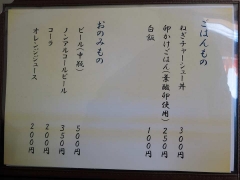 ごはんもの
ねぎチャーシュー丼 300円
卵かけごはん(葉酸卵使用) 250円
白飯 100円
おのみもの
ビール(中瓶) 500円
ノンアルコールビール 350円
コーラ 200円
オレンジジュース 200円